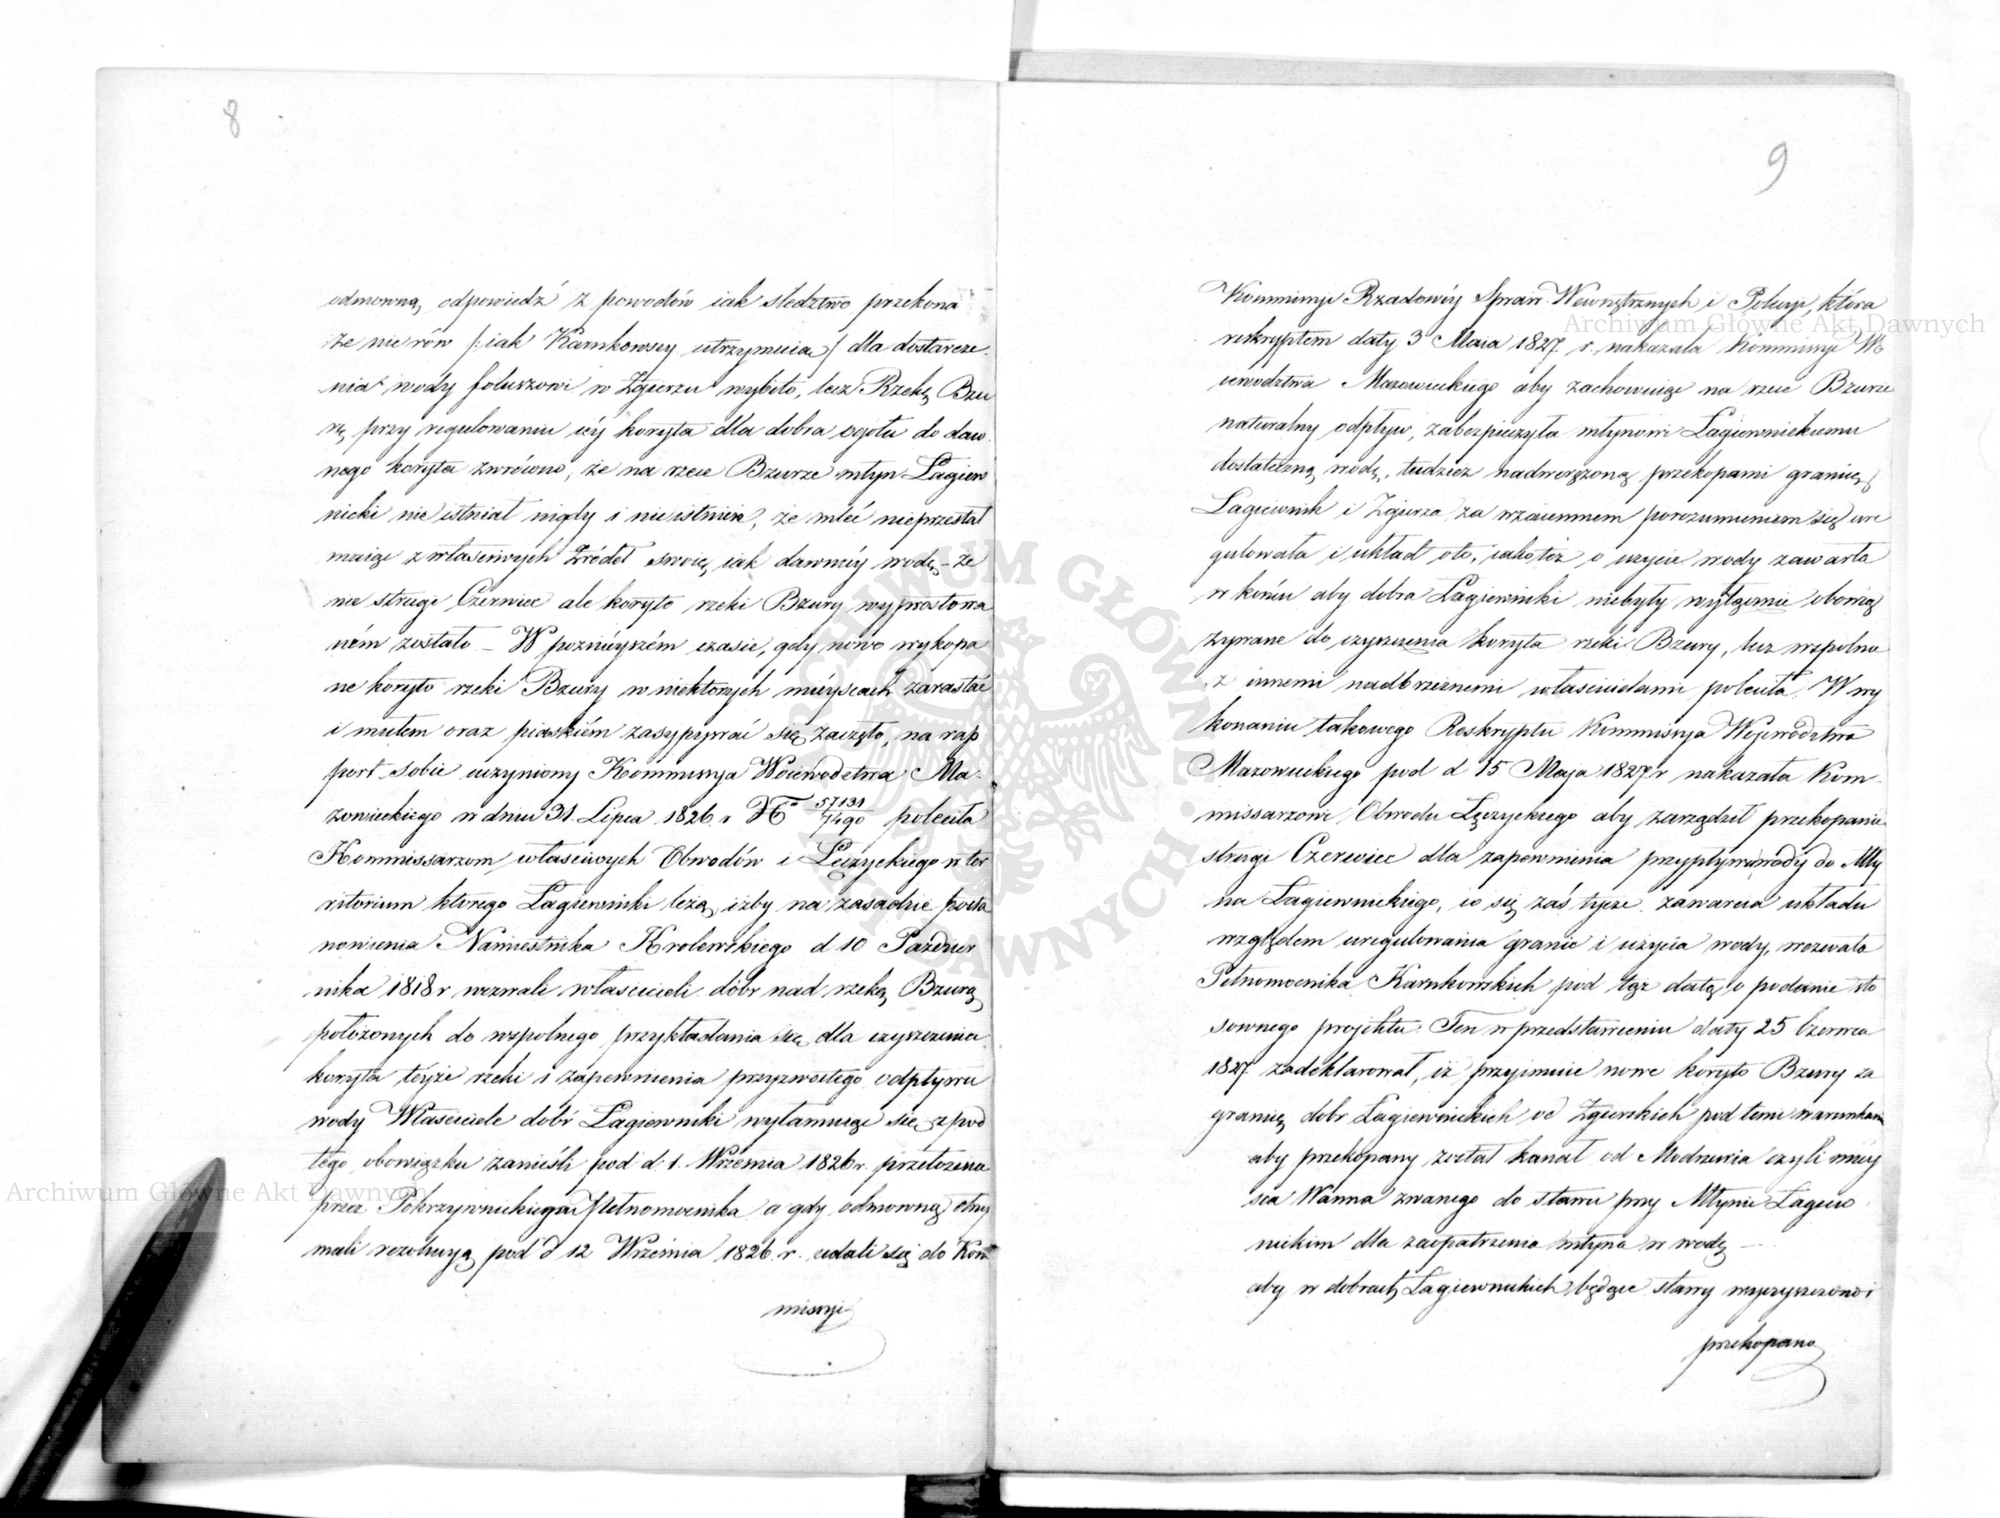 8
odmowną odpowiedź z powodów iak sledztwo przekona
że nie rów /: iak Karnkowscy utrzymuia / dla dostarcze
nia wody foluszowi w Zgierzu wybito, lecz Rzekę Bzu
rę przy regulowaniu iéy koryta dla dobra ogołu do daw
nego koryta zwrócono, że na rzece Bzurze młyn Łagiew
nicki nie istniał nigdy i nie istnieie, że mleć nieprzestał
maiąc z właściwych Źródeł swoię iak dawniéy wodę – że
nie struga Czerwiec ale koryto rzeki Bzury wyprostowa
ném zostało – W poznieyszém czasie, gdy nowo wykopa
ne koryto rzeki Bzury w niektorych mieyscach zarastać
i mułem oraz piaskiém zasypywać się zaczęło, na rap
port sobie uczyniony Kommissya Woiewodztwa Ma
zowieckiego w dniu 31 Lipca 1826 r No 57131/7490 poleciła
Kommissarzom właściwych Obwodów i Łęczyckiego w ter
ritorium ktorego Łagiewniki leżą, izby na zasadzie posta
nowienia Namiestnika Krolewskiego d 10 Pazdzier
nika 1818 r wezwali właścicieli dóbr nad rzeką Bzurą
położonych do wspolnego przykładania się dla czyszczenia
koryta teyże rzeki i zapewnienia przyzwoitego odpływu
wody Właściciele dóbr Łagiewniki wyłamuiąc się z pod
tego obowiązku zanieśli pod d 1. Wrzesnia 1826 r. przełożenia
przez Pokrzywnickiego Pełnomocnika a gdy odmowną otrzy
mali rezolucyą pod d 12 Wrzesnia 1826 r. udali się do Kom
missyi
9
Kommissyi Rządowéy Spraw Wewnętrznych i Policyi, która
reskryptem daty 3 Maia 1827 r. nakazała Kommissyi Wo
iewodztwa Mazowieckiego aby zachowuiąc na rzece Bzurze
naturalny odpływ, zabezpieczyła młynowi Łagiewnickiemu
dostateczną wodę, tudzież nadwerężoną przekopami granicę
Łagiewnik i Zgierza za wzaiemnem porozumieniem się ure
gulowała i układ oto, iakoteż o użycie wody zawarła
w końcu aby dobra Łagiewniki niebyły wyłącznie obowią
zywane do czyszczenia koryta rzeki Bzury, lecz wspolnie
z innemi nadbrzeżnemi właścicielami poleciła. W wy
konaniu takowego Reskryptu Kommissya Wojewodztwa
Mazowieckiego pod d 15 Maja 1827 r nakazała Kom
missarzowi Obwodu Łęczyckiego aby zarządził przekopanie
strugi Czerwiec dla zapewnienia przypływu wody do Mły
na Łagiewnickiego, co się zaś tycze zawarcia układu
względem uregulowania granic i użycia wody, wezwała
Pełnomocnika Karnkowskich pod tąż datą o podanie sto
sownego projektu. Ten w przedstawieniu daty 25 Czerwca
1827 zadeklarował, iż przyimuie nowe koryto Bzury za
granicę dobr Łagiewnickich od Zgierskich pod temi warunkam
aby przekopany został kanał od Modrzewia czyli miey
sca Wanna zwanego do stawu przy Młynie Łagiew
nickim dla zaopatrzenia młyna w wodę —
aby w dobrach Łagiewnickich będące stawy wyczyszczono i
przekopano
Archiwum Główne Akt Dawnych
Archiwum Główne Akt Dawnych
ARCHIWUM GŁÓWNE AKT DAWNYCH